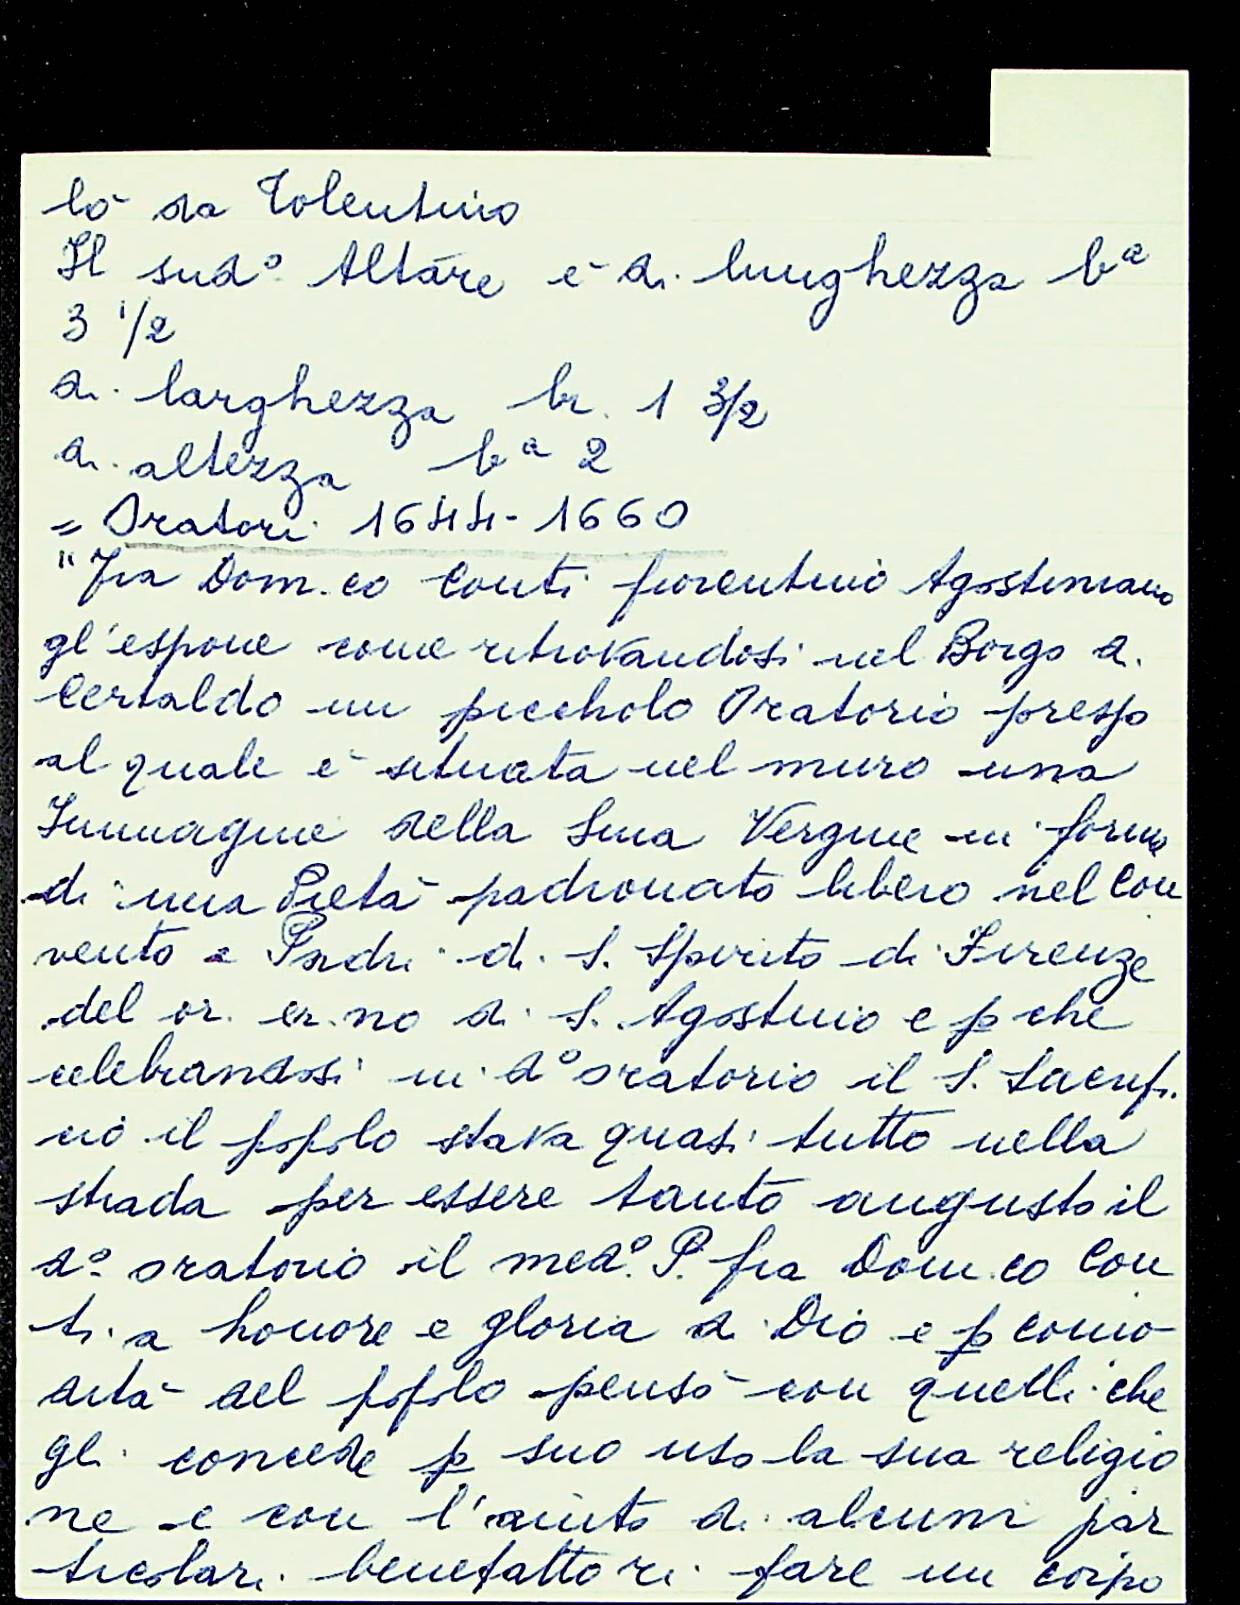 lò da Tolentino
Il sud° Altare è di lunghezza bª
3 1/2
di larghezza br. 1 3/2
di altezza bª 2
= Oratori 1644-1660
"Fra Dom.co Conti fiorentino Agostiniano
gl'espone come ritrovandosi nel Borgo di
Certaldo un piccholo Oratorio presso
al quale è situata nel muro una
Immagine della Sma Vergine in forma
di una Pietà padronato libero nel Con
vento e Padri di S. Spirito di Firenze
del or. er.no di S. Agostino e p che
celebrandosi in d° oratorio il S. Sacrifi
cio il popolo stava quasi tutto nella
strada per essere tanto augusto il
d° oratorio il med°. P. fra Dom.co Con
ti a honore e gloria di Dio e p como
dità del popolo pensò con quelli che
gli concede p suo uso la sua religio
ne e con l'aiuto di alcuni par
ticolari benefattori fare un corpo